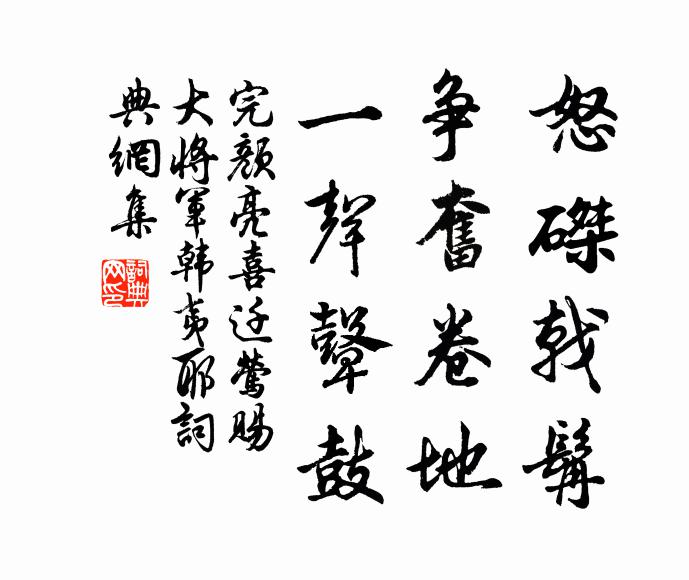 怒磔戟髯
争奮卷地
一聲鼙鼓
完顏亮喜迁鶯賜
大將軍韓夷耶詞
典網集
詞典
网印